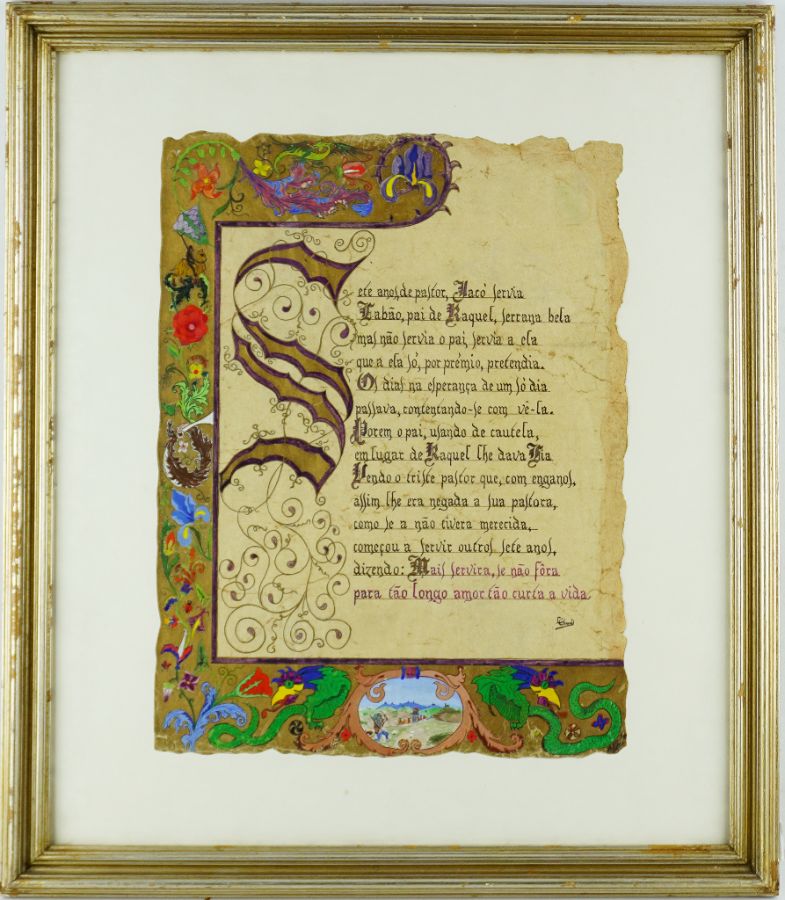 Sete anos de pastor, Jacò servia
Labão, pai de Raquel, serrana bela
mas não servia o pai, servia a ela
que a ela só, por prémio, pretendia.
Os dias na esperança de um só dia
passava, contentando-se com vê-la.
Porem o pai, usando de cautela,
em lugar de Raquel lhe dava Lia
Vendo o triste pastor que, com enganos,
assim lhe era negada a sua pastora,
como se a não tivera merecida,
começou a servir outros sete anos,
dizendo: Mais servira, se não fôra
para tão longo amor tão curta a vida.